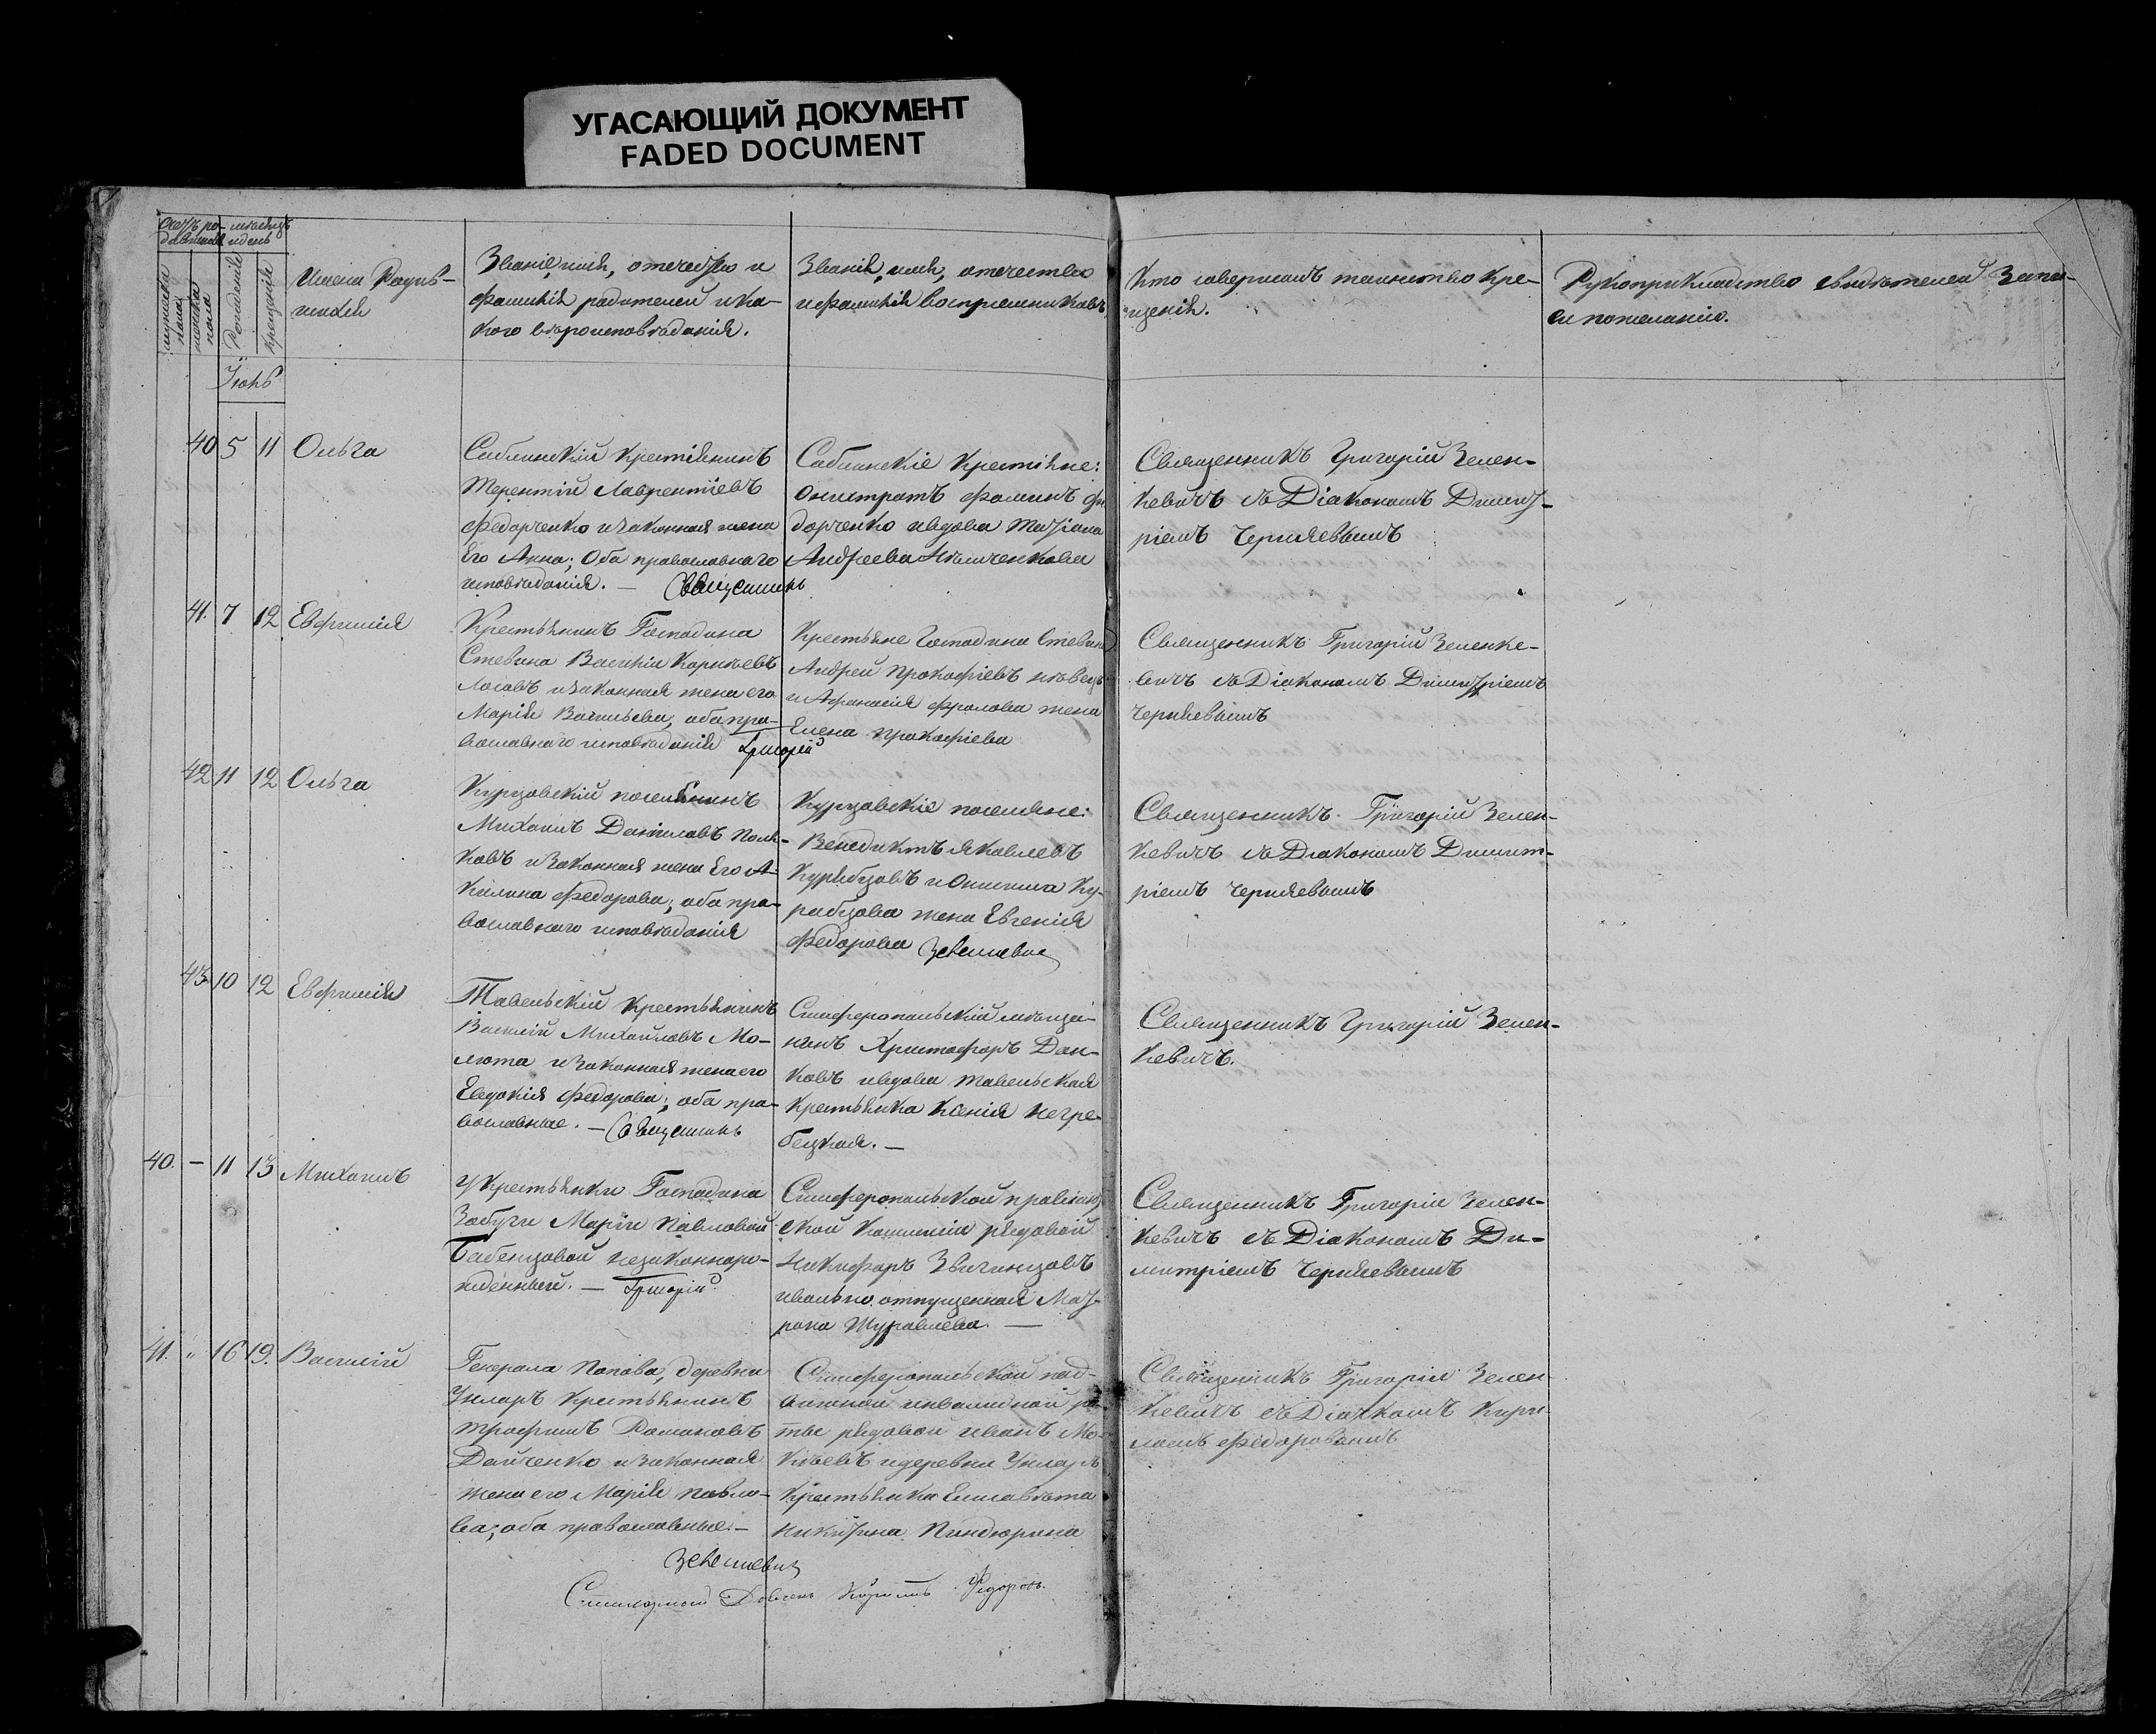 УГАСАЮЩИЙ ДОКУМЕНТ
FADED DOCUMENT
Счетъ ро-
дившихся
мѣсяцъ
и день
мужеска
пола
женска
пола
Рожденія
Крещенія
Имена Родив-
шихся
Званіе, имя, отечество и
фамилія родителей и ка-
кого вѣроисповѣданія.
Званіе, имя, отечество
и фамилія воспріемниковъ
Кто совершалъ таинство кре-
щенія.
Рукоприкладство свидѣтелей Запи-
си по желанію.
Іюнь
40 5 11 Ольга
Саблинскій крестіянинъ
Терентій Лаврентіевъ
Федорченко и законная жена
Его Анна; Оба православнаго
исповѣданія. —
Саблинскіе крестіяне:
Онистратъ Фоминъ Фе
дорченко и вдова Татіана
Андреева
Священникъ Григорій Зелен-
кевичъ съ Діакономъ Димит-
ріемъ Черняевымъ
41. 7 12 Евфимія
Крестьянинъ Господина
Стевена Василій Корнѣевъ
Лосовъ и законная жена его
Марія Васильева, оба пра-
вославнаго исповѣданія Григорій
Крестьяне Господина Стевена
Андрей Прокофіевъ
и Афанасія Фролова жена
Елена Прокофіева
Священникъ Григорій Зеленке-
вичъ съ Діакономъ Димитріемъ
Черняевымъ
42 11 12 Ольга
Курцовскій поселянинъ
Михаилъ Даниловъ Поля-
ковъ и Законная жена Его А-
килина Федорова; оба пра-
вославнаго исповѣданія
Курцовскіе поселяне:
Венедиктъ Яковлевъ
и Онисима Ку-
рабцова жена Евгенія
Федорова Зеленкевич
Священникъ Григорій Зелен-
кевичъ съ Діакономъ Димит-
ріемъ Черняевымъ
43 10 12 Евфимія
Тавельскій крестьянинъ
Василій Михайловъ Мо-
люта и Законная жена его
Евдокія Федорова; оба пра-
вославные. —
Симферопольскій мѣща-
нинъ Христофоръ Дан-
ковъ и вдова тавельская
крестьянка Ксенія Негре-
бецкая. —
Священникъ Григорій Зелен-
кевичъ.
40. — 11 13 Михаилъ
У крестьянки Господина
Забуги Маріи Павловой
Бабенцовой незаконнаро-
жденный. — Григорій
Симферопольской провіант
ской комисіи рядовой
Никифоръ
и вольно отпущенная Мат-
рона Журавлева. —
Священникъ Григорій Зелен-
кевичъ съ Діакономъ Ди-
митріемъ Черняевымъ
41. „ 16 19. Василій
Генерала Попова, деревни
крестьянинъ
Трофимъ Романовъ
Дайченко и законная
жена его Марія Павло-
ва; оба православные. —
Симферопольской под-
вижной инвалидной ро
ты рядовой Иванъ Мо-
кѣевъ и деревни
крестьянка Елисавета
Никитина Пиндюрина
Священникъ Григорій Зелен-
кевичъ съ Діачкомъ Кири-
ломъ Федоровымъ
Зеленкевич
Кирилъ Федоровъ.